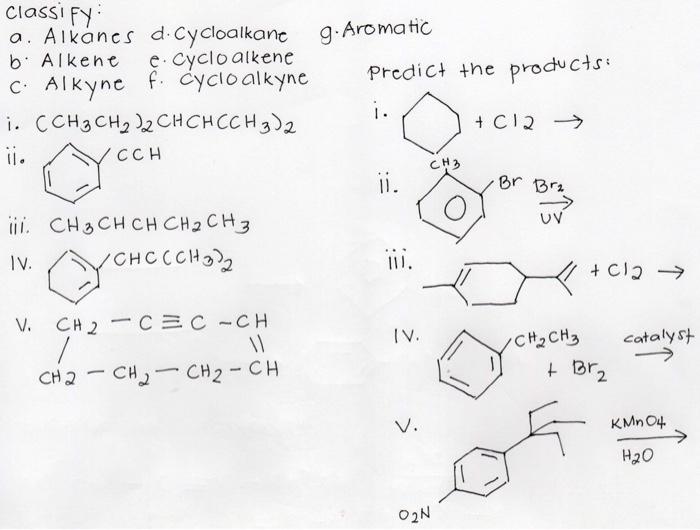 classify:
a. Alkanes d. Cycloalkane g. Aromatic
b. Alkene e. cycloalkene
c. Alkyne f. cycloalkyne
i. (CH3CH2)2CHCHC(CH3)2
ii. CCH
iii. CH3CHCHCH2CH3
IV. CHC(CH3)2
V. CH2 - C ≡ C - CH
CH2 - CH2 - CH2 - CH
Predict the products:
i. + Cl2 →
ii. CH3 Br Br2 UV
iii. + Cl2 →
IV. CH2CH3 + Br2 catalyst
V. KMnO4 H2O
O2N